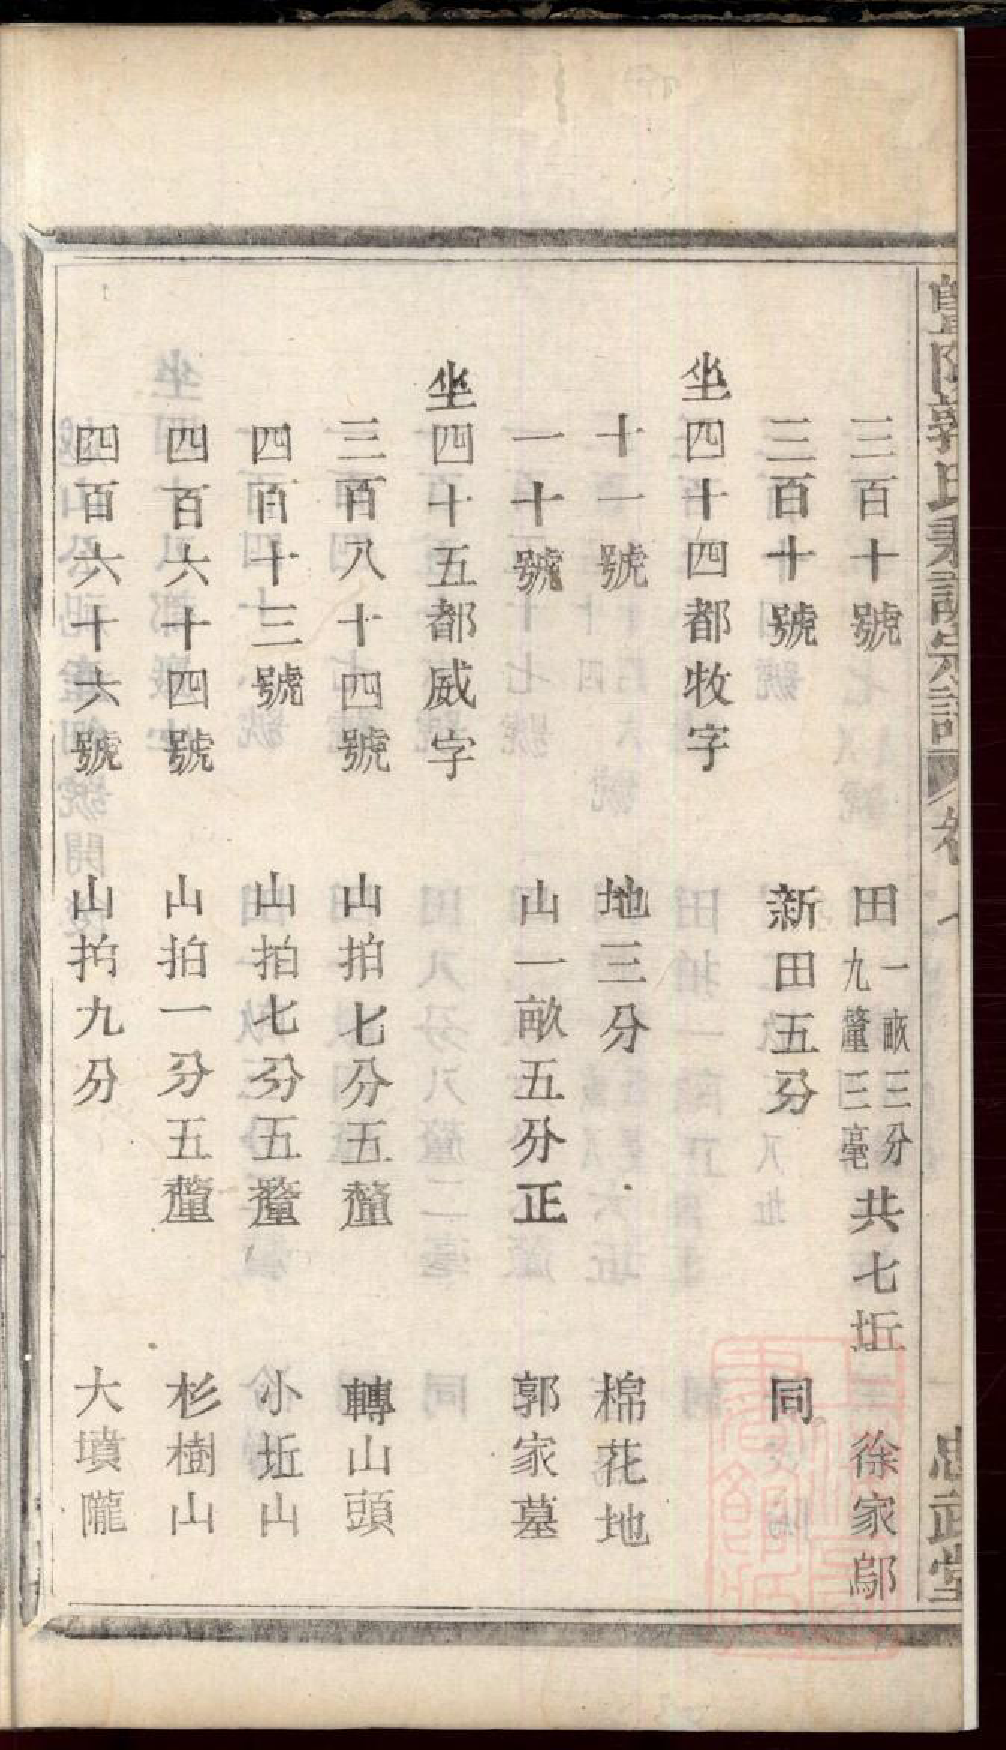 暨陽郭氏彙訂宗譜 卷 忠武堂
三百十號 田一畝三分九釐三毫共七坵 徐家鄔
三百十號 新田五分 同
坐四十四都牧字
十一號 地三分 棉花地
一十號 山一畝五分正 郭家墓
坐四十五都威字
三百八十四號 山拍七分五釐 轉山頭
四百十三號 山拍七分五釐 小坵山
四百六十四號 山拍一分五釐 杉樹山
四百六十六號 山拍九分 大墳隴